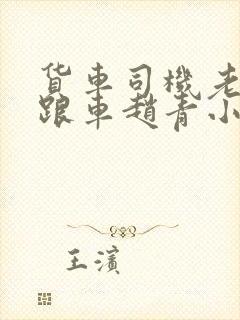 货車司機老
跟車趙青小
王濱